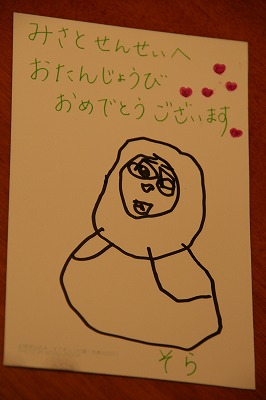 みさとせんせいへ
おたんじょうび
おめでとうございます
そら